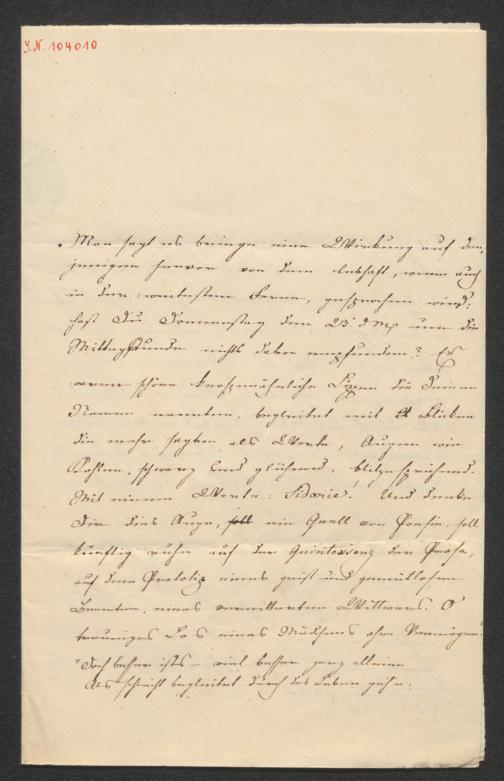 J.N. 104010
Man sagt es bringe eine Wirkung auf den-
jenigen hervor von dem lebhaft, wenn auch
in der weitesten Ferne, gesprochen wird;
hast Du Donnerstag den 23t d Mts um die
Mittagsstunde nichts davon empfunden? Es
waren schöne Lippen die Deinen
Namen nannten, begleitet mit Blicken
die mehr sagten als Worte, Augen wie
Kohlen, schwarz und glühend, blitzesprühend.
Mit einem Worte: Fidonie! Und denke
Dir dies Auge, ein Quell von Poesie, soll
künftig ruhn auf der Quintessenz der Prosa,
auf dem Prototip eines geist und gemütlosen
Beamten, eines verwitterten Wittwers. O
trauriges Los eines Mädchens ohne Vermögen!
"Doch besser ists – viel besser ganz allein
Als schlecht begleitet durch das Leben gehn.